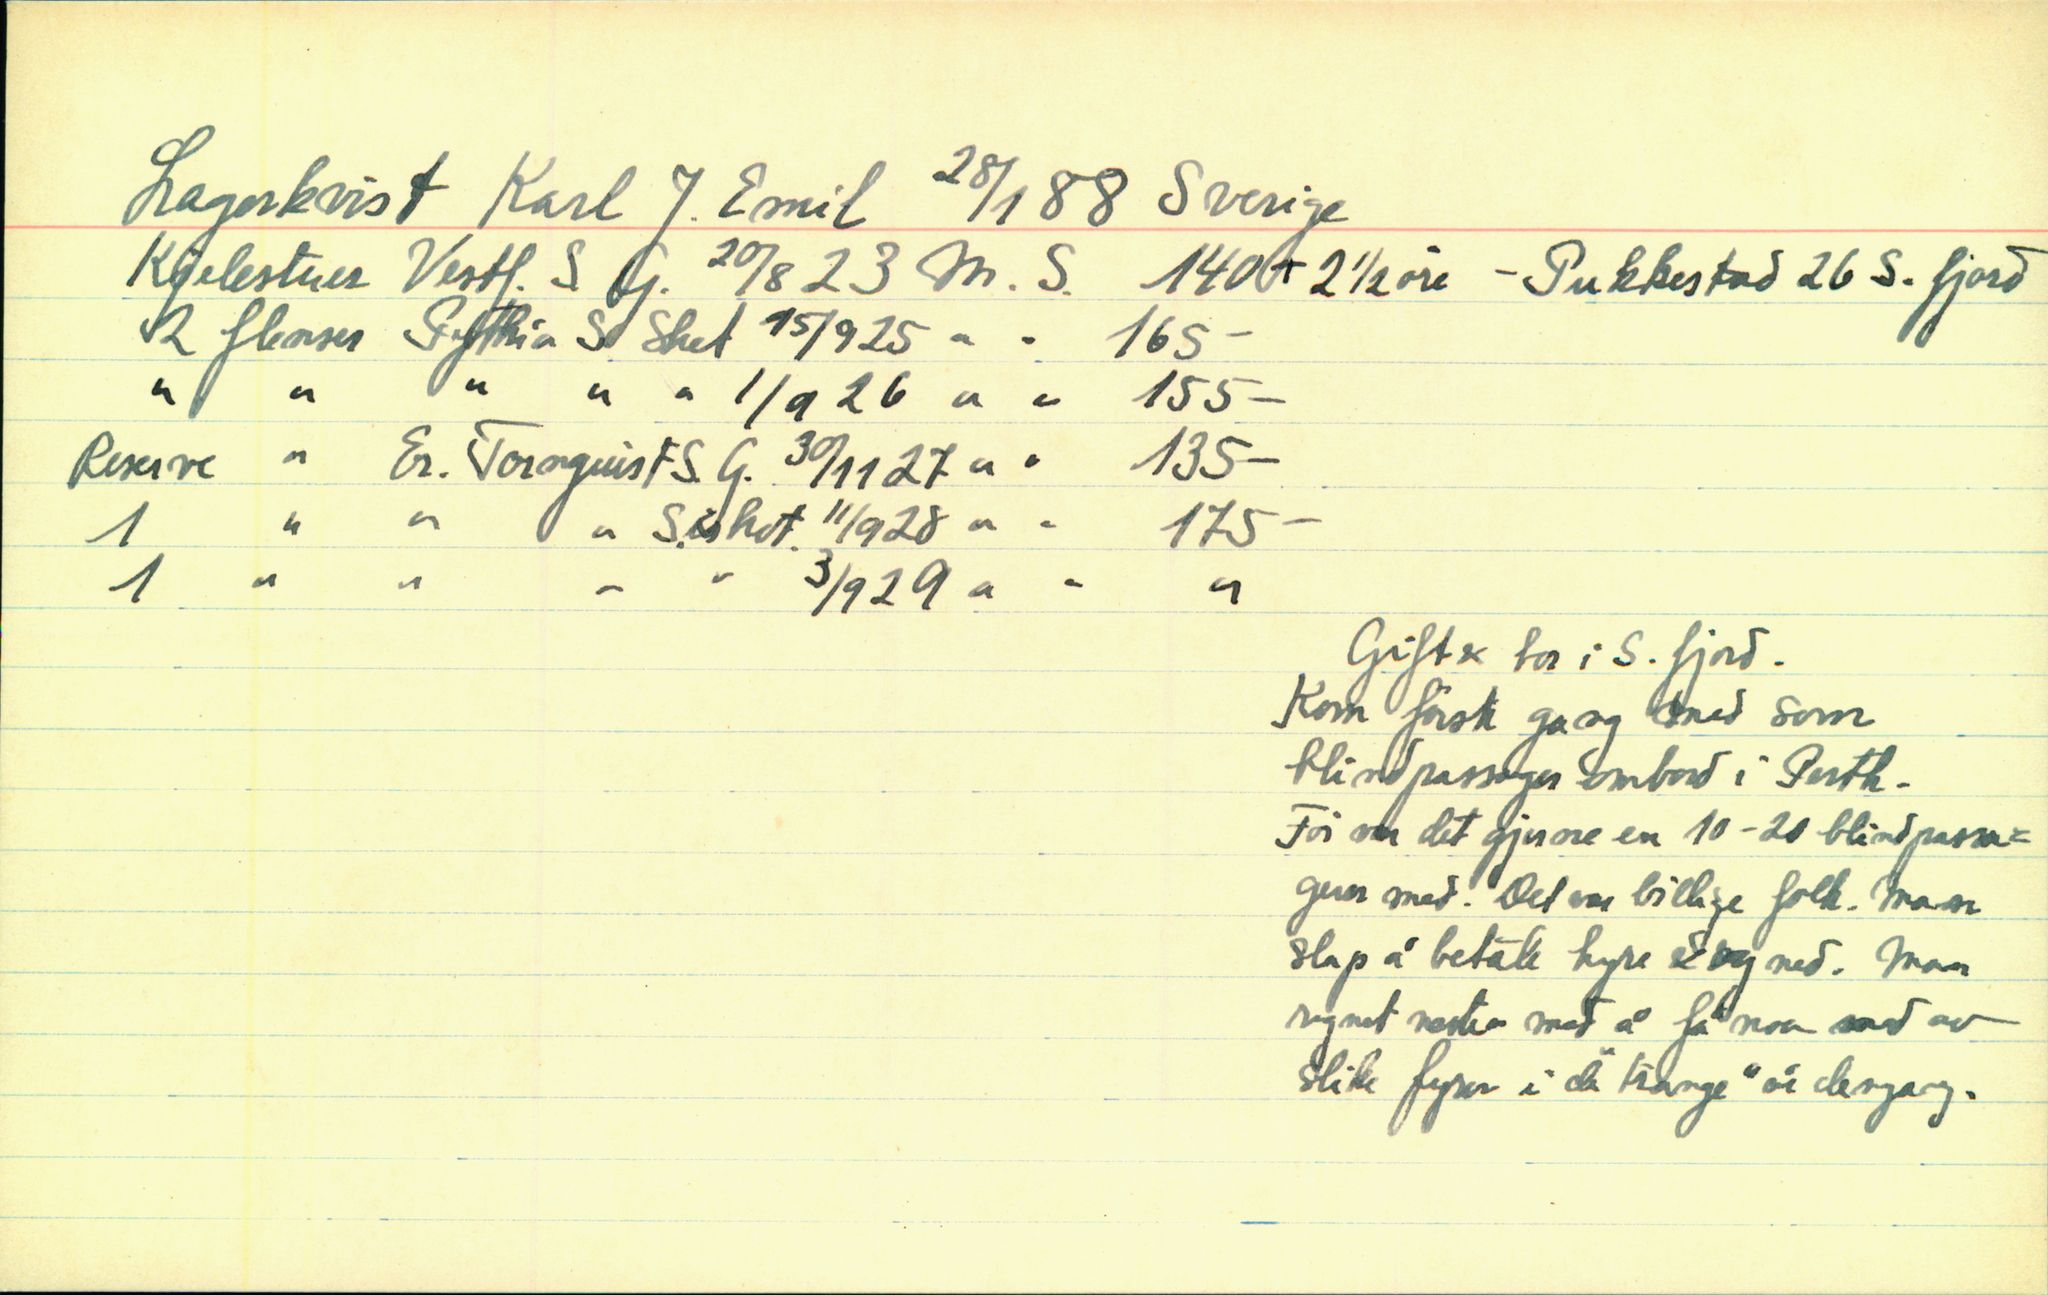 Lagerkvist Karl J. Emil 28/1 88 Sverige
Kjelestuer Vestf. S. G. 20/8 23 M. S. 140 + 2 1/2 öre - Pukkestad 26 S. fjord
2 flenser Pythia S. Shet 15/9 25 " " 165 -
" " " " " 1/9 26 " " 155 -
Reserve " Er. Tornquist S. G. 30/11 27 " " 135 -
1 " " " S. ishot. 11/9 28 " " 175 -
1 " " " " 3/9 29 " " "
Gift & bor i S. fjord.
Kom först gang med som
blindpassager ombord i Perth.
För var det gjerne en 10 - 20 blindpassa=
gerer med. Det var billige folk. Man
slap å betale hyre ned. Man
regnet nesten med å få noen med av
slike fyrer i de "trange" år dengang.